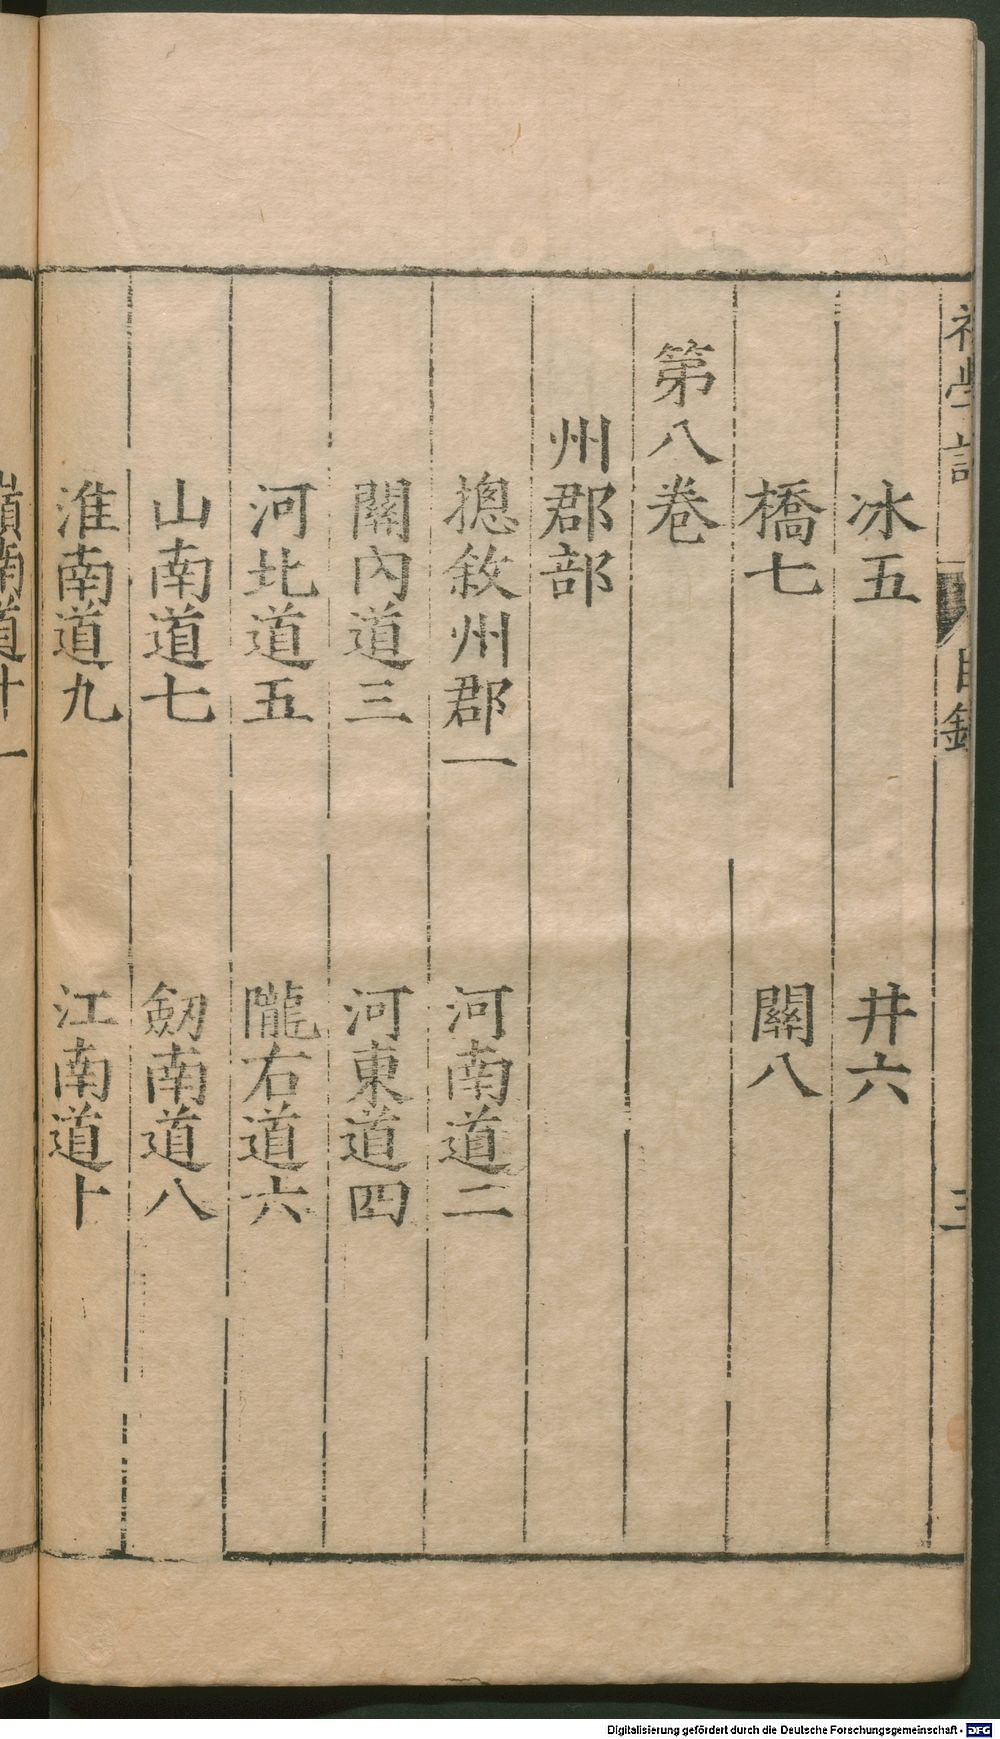 冰五　井六
橋七　關八
第八卷
州郡部
摠敘州郡一　河南道二
關內道三　河東道四
河北道五　隴右道六
山南道七　劒南道八
淮南道九　江南道十
嶺南道十一
目錄
三
Digitalisierung gefördert durch die Deutsche Forschungsgemeinschaft - DFG